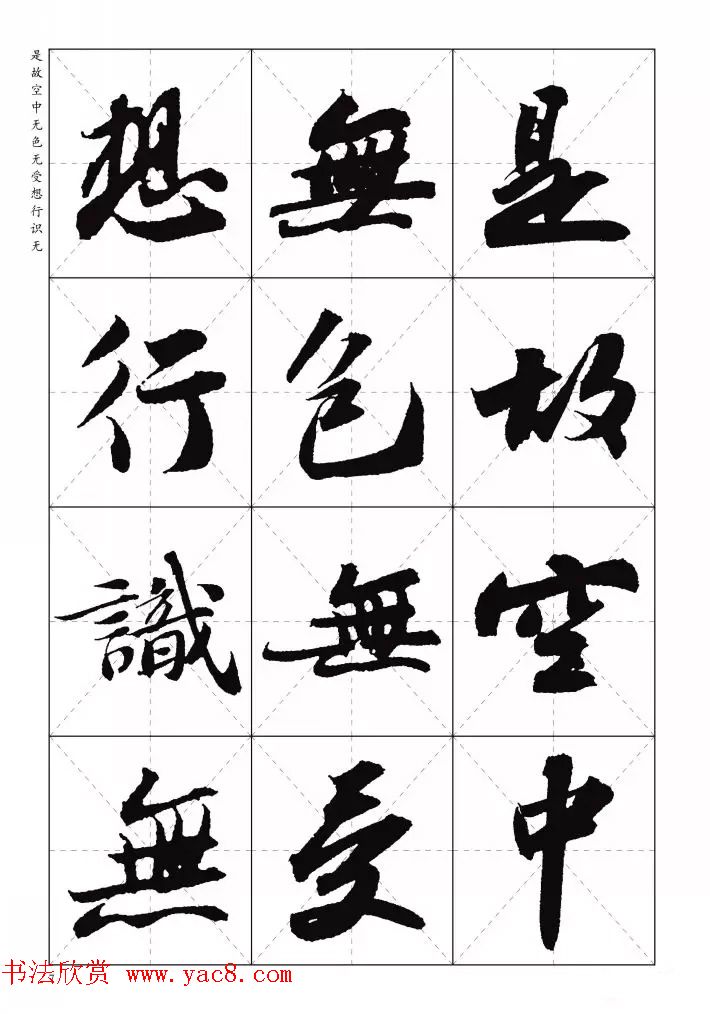 是故空中
無色無受
想行識無
是故空中无色无受想行识无
书法欣赏 www.yac8.com